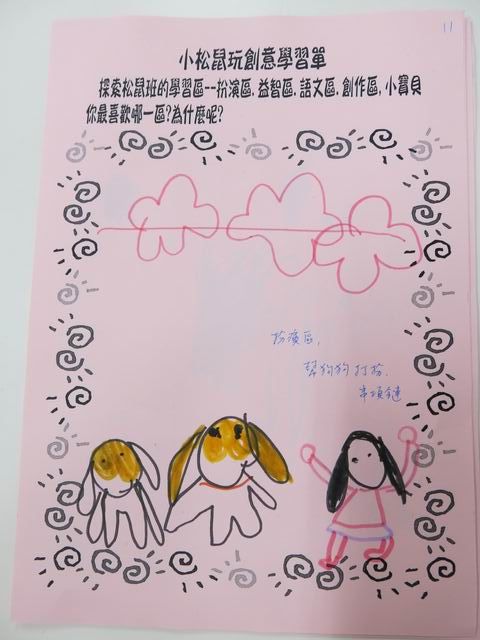 11
小松鼠玩創意學習單
探索松鼠班的學習區--扮演區,益智區,語文區,創作區,小寶貝
你最喜歡哪一區?為什麼呢?
扮演區,
幫狗狗打扮.
串項鏈